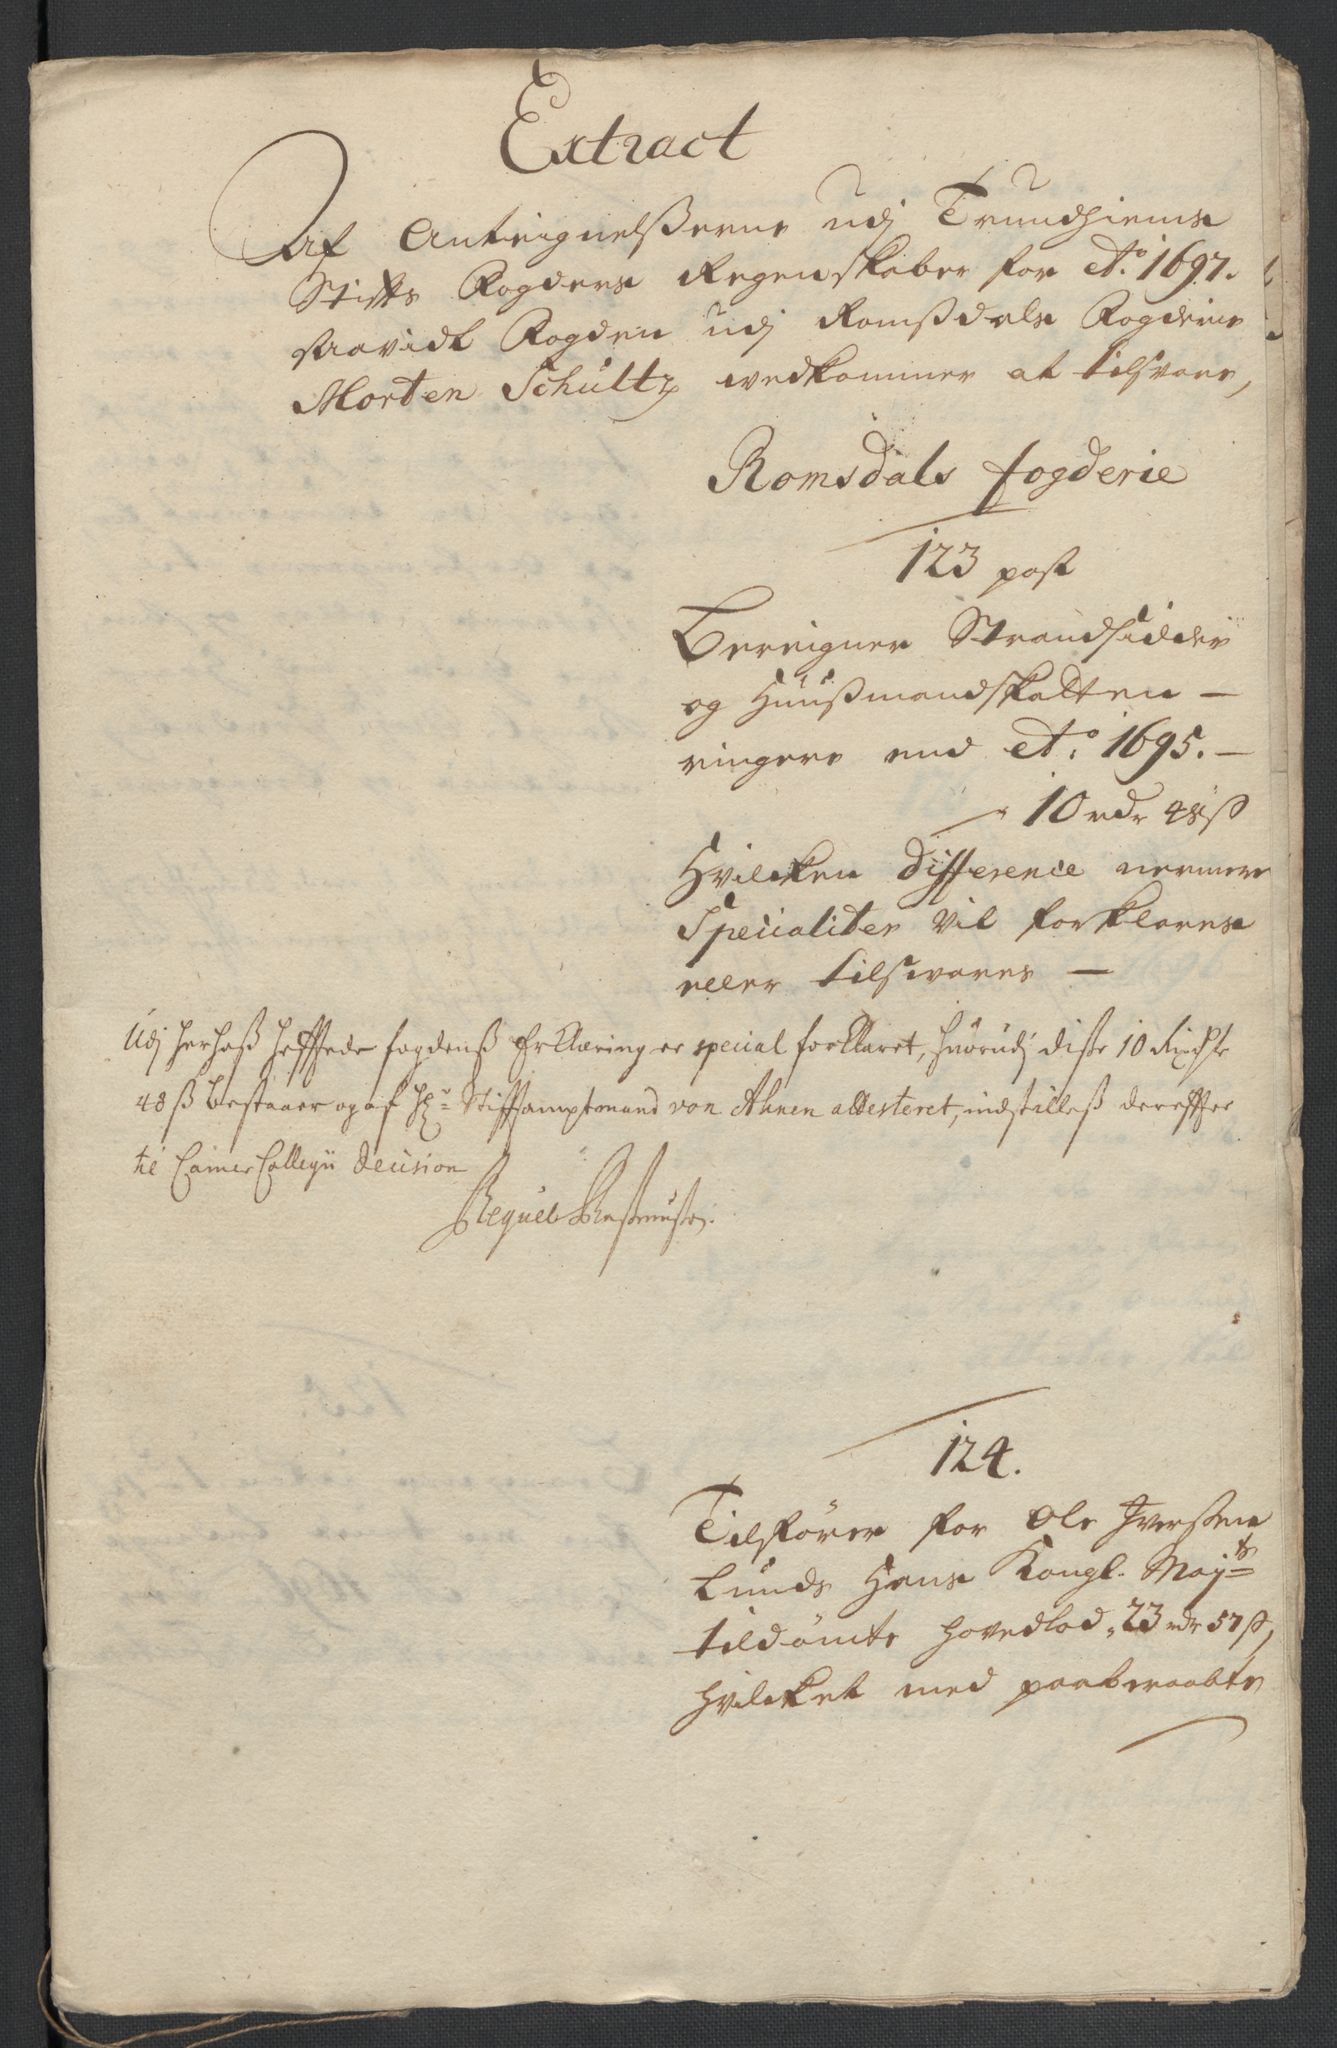 Extract
Af Anteignelßerne udj Trundhiems
Stifts Fogders Regenskaber for Ao. 1697.
saavidt Fogden udj Romßdals Fogderie
Morten Schultz wedkommer at tilsvare,
Romsdals fogderie
123 post
Bereigner Strandsidder
og Huußmandskatten —
ringere end Ao. 1695. —
10 rdr 48 ß
Hvilcken Difference nermere
Specialiter vil forklares
eller tilswares —
Udj herhoß hefftede fogdenß Erklæring er special forklaret, huorudj diße 10 Rixdlr
48 ß bestaaer og af Hr Stifftamptmand von Ahnen attesteret, indstilleß dereffter
til Camer Collegii Decision
124.
Tilfører for Ole Iverßen
Lunds Hans Kongl. Mayts
tildömte hovedlod, 23 rdr 57 ß,
hvilcket med paaberaabte